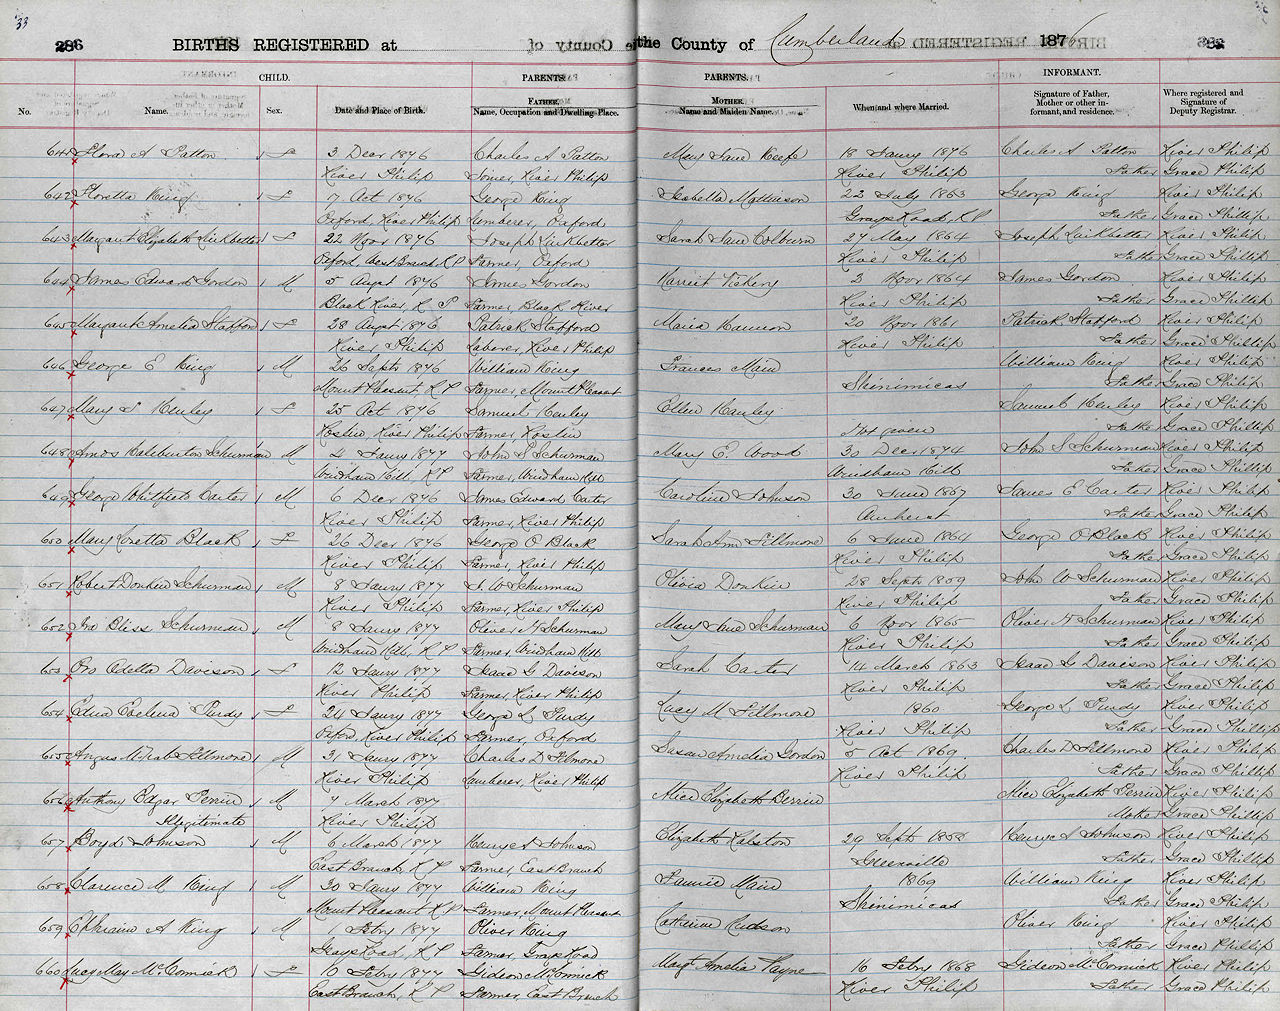 33
286 BIRTHS REGISTERED at the County of Cumberland 1876
CHILD. PARENTS. PARENTS. INFORMANT.
No. Name. Sex. Date and Place of Birth. FATHER. Name, Occupation and Dwelling-Place. MOTHER. Name and Maiden Name. When and where Married. Signature of Father, Mother or other informant, and residence. Where registered and Signature of Deputy Registrar.
641 Flora A Patton F 3 Decr 1876 Charles A Patton Mary Jane Keefe 18 Jany 1876 Charles A Patton River Philip
River Philip River Philip River Philip Father Grace Philip
642 Floretta King F 7 Oct 1876 George King Isabella Mattinson 22 July 1863 George King River Philip
Oxford, River Philip Lumberer, Oxford Grays Road, R P Father Grace Phillip
643 Margaret Elizabeth F 22 Novr 1876 Joseph Sarah Jane Colburn 27 May 1864 Joseph River Philip
Oxford, West Branch, R P Farmer, Oxford River Philip Father Grace Phillip
644 James Edward Gordon M 5 Augst 1876 James Gordon Harriet Vickery 3 Novr 1864 James Gordon River Philip
Black River, R P Farmer, Black River River Philip Father Grace Phillip
645 Margaret Amelia Stafford F 28 Augst 1876 Patrick Stafford Maria 20 Novr 1861 Patrick Stafford River Philip
River Philip Laborer, River Philip River Philip Father Grace Phillip
646 George E King M 26 Septr 1876 William King Frances William King River Philip
Mount Pleasant, R P Farmer Mount Pleasant Shinimicas Father Grace Phillip
647 Mary Henley F 25 Oct 1876 Samuel Henley Ellen Hanley Samuel Henley River Philip
Roslin, River Philip Farmer Roslin Not given Father Grace Phillip
648 Amos Haliburton Schurman M 4 Jany 1877 John S Schurman Mary E Wood 30 Decr 1874 John S Schurman River Philip
Windham Hill, R P Farmer, Windham Hill Windham Hill Father Grace Phillip
649 George Whitfield Carter M 6 Decr 1876 James Edward Carter Caroline Johnson 30 June 1867 James E Carter River Philip
River Philip Farmer, River Philip Amherst Father Grace Phillip
650 Mary Loretta Black F 26 Decr 1876 George O Black Sarah Ann Fillmore 6 June 1864 George O Black River Philip
River Philip Farmer, River Philip River Philip Father Grace Philip
651 Robert Donkin Schurman M 8 Jany 1877 J. W Schurman Olivia Donkin 28 Septr 1859 John W Schurman River Philip
River Philip Farmer, River Philip River Philip Father Grace Philip
652 Ira Bliss Schurman M 8 Jany 1877 Oliver H Schurman Mary Jane Schurman 6 Novr 1865 Oliver H Schurman River Philip
Windham Hill, R P Farmer Windham Hill River Philip Father Grace Philip
653 Odella Davison F 12 Jany 1877 Isaac G Davison Sarah Carter 14 March 1863 Isaac G Davison River Philip
River Philip Farmer, River Philip River Philip Father Grace Phillip
654 Edna Evelena Purdy F 24 Jany 1877 George L Purdy Lucy M Fillmore 1860 George L Purdy River Philip
Oxford, River Philip Farmer, Oxford River Philip Father Grace Phillip
655 Angus Fillmore M 31 Jany 1877 Charles D Fillmore Susan Amelia Gordon 5 Oct 1869 Charles D Fillmore River Philip
River Philip Lumberer, River Philip River Philip Father Grace Phillip
656 Anthony Edgar Perrin M 7 March 1877 Alice Elizabeth Perrin Alice Elizabeth Perrin River Philip
Illegitimate River Philip Mother Grace Phillip
657 Boyd Johnson M 6 March 1877 Johnson Elizabeth Ralston 29 Septr Johnson River Philip
East Branch, R P Farmer East Branch Greenville Father Grace Phillip
658 Clarence M King M 30 Jany 1877 William King Fannie 1869 William King River Philip
Mount Pleasant, R P Farmer, Mount Pleasant Shinimicas Father Grace Philip
659 Ephraim A King M Febry 1877 Oliver King Catherine Hudson Oliver King River Philip
Grays Road, R P Farmer, Grays Road Father Grace Phillip
660 Lucy May McCormick F 10 Febry 1877 Gideon McCormick Margt Amelia Payne 16 Febry 1868 Gideon McCormick River Philip
East Branch, R P Farmer, East Branch River Philip Father Grace Philip